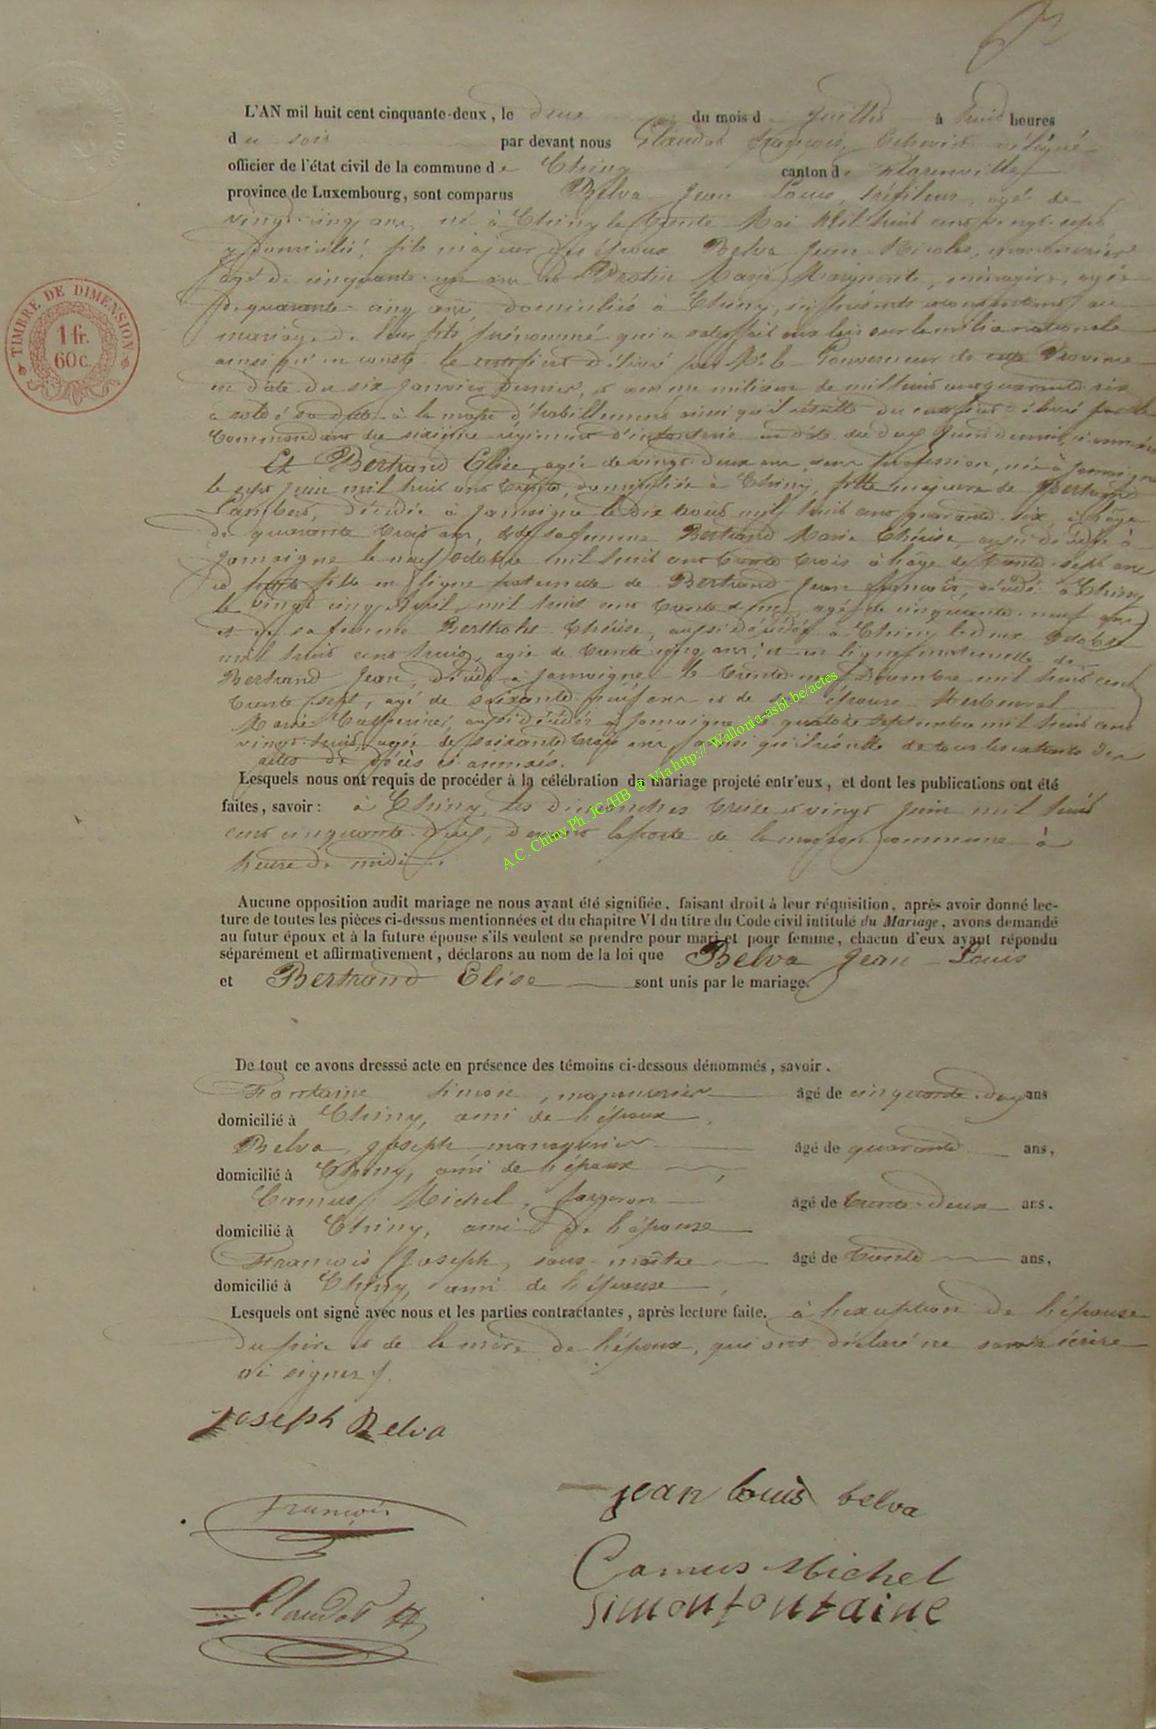 L'AN mil huit cent cinquante-deux, le deux du mois d juillet à huit heures
du soir par devant nous Claudot François, Echevin délégué
officier de l'état civil de la commune de Chiny canton de Florenville
province de Luxembourg, sont comparus Belva Jean Louis, tréfileur, agé de
vingt cinq ans, né à Chiny le trente Mai Mil huit cent vingt sept
y domicilié, fils majeur des époux Belva Jean Nicolas, manouvrier
agé de cinquante un ans et Protin Marie Marguerite, ménagère, agée
de quarante cinq ans, domiciliés à Chiny, ci présents et consentants au
mariage de leur fils prénommé qui a satisfait aux lois sur la milice nationale
ainsi qu'il conste le certificat délivré par Mr le Gouverneur de cette Province
en date du six janvier dernier, et comme milicien de mil huit cent quarante six
a soldé sa dette à la masse d'habillement ainsi qu'il résulte du certificat délivré par le
Commandant du sixième régiment d'infanterie en date du deux Juin dernier, ci annexés
Et Bertrand Elise, agée de vingt deux ans, sans profession, née à Jamoigne
le sept Juin mil huit cent trente, domiciliée à Chiny, fille majeure de Bertrand
Lambert, décédé à Jamoigne le dix août mil huit cent quarante six, à l'âge
de quarante trois ans, et de sa femme Bertrand Marie Thérèse aussi décédée à
Jamoigne le neuf octobre mil huit cent trente trois à l'age de trente sept ans
et petite fille en ligne paternelle de Bertrand Jean François, décédé à Chiny
le vingt cinq Avril mil huit cent trente agé de cinquante neuf ans
et de sa femme Bertholet Thérèse, aussi décédée à Chiny le deux Octobre
mil huit cent huit, agée de trente cinq ans; et en ligne maternelle de
Bertrand Jean, décédé à Jamoigne le trente Décembre mil huit cent
trente sept, agé de soixante ans et de son épouse
Marie Catherine, aussi décédée à Jamoigne le quatorze septembre mil huit cent
vingt huit, agée de soixante trois ans, ainsi qu'il résulte de tous les extraits des
actes de décès ci annexés.
Lesquels nous ont requis de procéder à la célébration du mariage projeté entr'eux, et dont les publications ont été
faites, savoir: à Chiny, les dimanches treize et vingt Juin mil huit
cent cinquante deux, devant la porte de la maison commune à
heure de midi.
Aucune opposition audit mariage ne nous ayant été signifiée, faisant droit à leur réquisition, après avoir donné lec-
ture de toutes les pièces ci-dessus mentionnées et du chapitre VI du titre du Code civil intitulé du Mariage, avons demandé
au futur époux et à la future épouse s'ils veulent se prendre pour mari et pour femme, chacun d'eux ayant répondu
séparément et affirmativement, déclarons au nom de la loi que Belva Jean Louis
et Bertrand Elise sont unis par le mariage.
De tout ce avons dresssé acte en présence des témoins ci-dessous dénommés, savoir.
Fontaine Simon, manouvrier âgé de cinquante deux ans
domicilié à Chiny, ami de l'époux
Belva Joseph manouvrier âgé de quarante ans,
domicilié à Chiny, ami de l'époux
Camus Michel, forgeron âgé de trente deux ans.
domicilié à Chiny, ami de l'épouse
François Joseph, sous-maître âgé de trente ans,
domicilié à Chiny, ami de l'épouse
Lesquels ont signé avec nous et les parties contractantes, après lecture faite, à l'exception de l'épouse
du père et de la mère de l'époux, qui ont déclaré ne savoir écrire
ni signer.
Joseph Belva
jean louis belva
François
Camus Michel
Simon fontaine
Claudot
TIMBRE DE DIMENSION
1 fr.
60 c.
A.C. Chiny Ph. JC/HB @ Via http:// Wallonia-asbl.be/actes